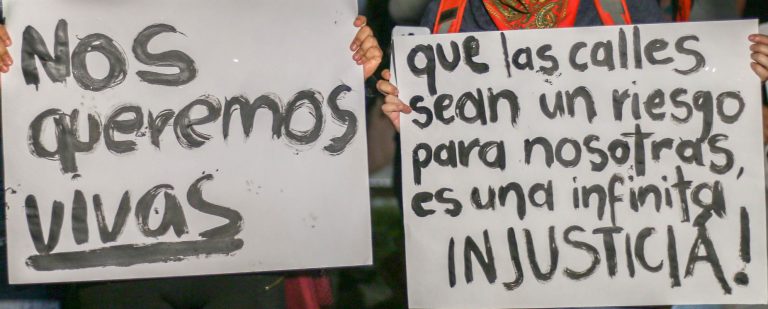 Nos
queremos
vivas
que las calles
sean un riesgo
para nosotras,
es una infinita
INJUSTICIA!